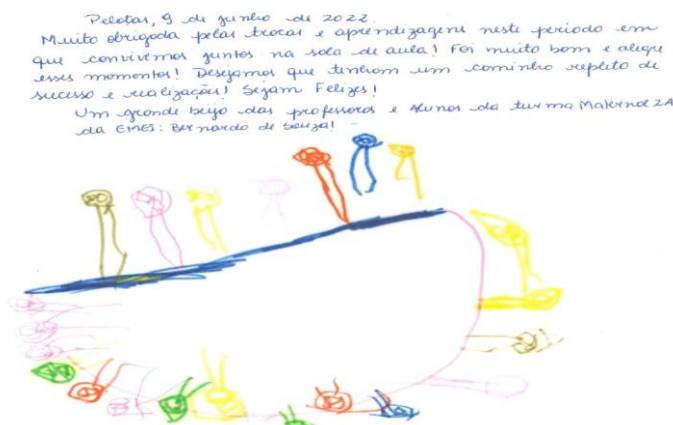 Pelotas, 9 de junho de 2022.
Muito obrigada pelas trocas e aprendizagens neste período em
que convivemos juntos na sala de aula! Foi muito bom e alegre
esses momentos! Desejamos que tenham um caminho repleto de
sucesso e realizações! Sejam Felizes!
Um grande beijo das professoras e Alunos da turma Maternal 2A
da EMEI: Bernardo de Souza!